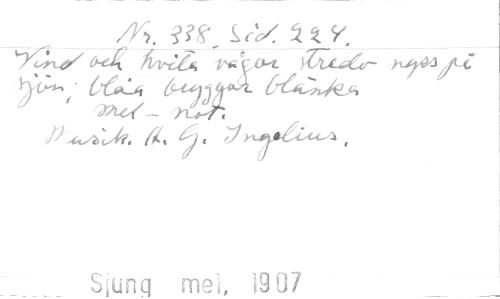 Nr. 338. Sid. 224.
Vind och hvita vågor stredo nyss på
sjön; blåa bryggor blänka
mel - not.
Musik. A. G. Ingelius.
Sjung mel, 1907